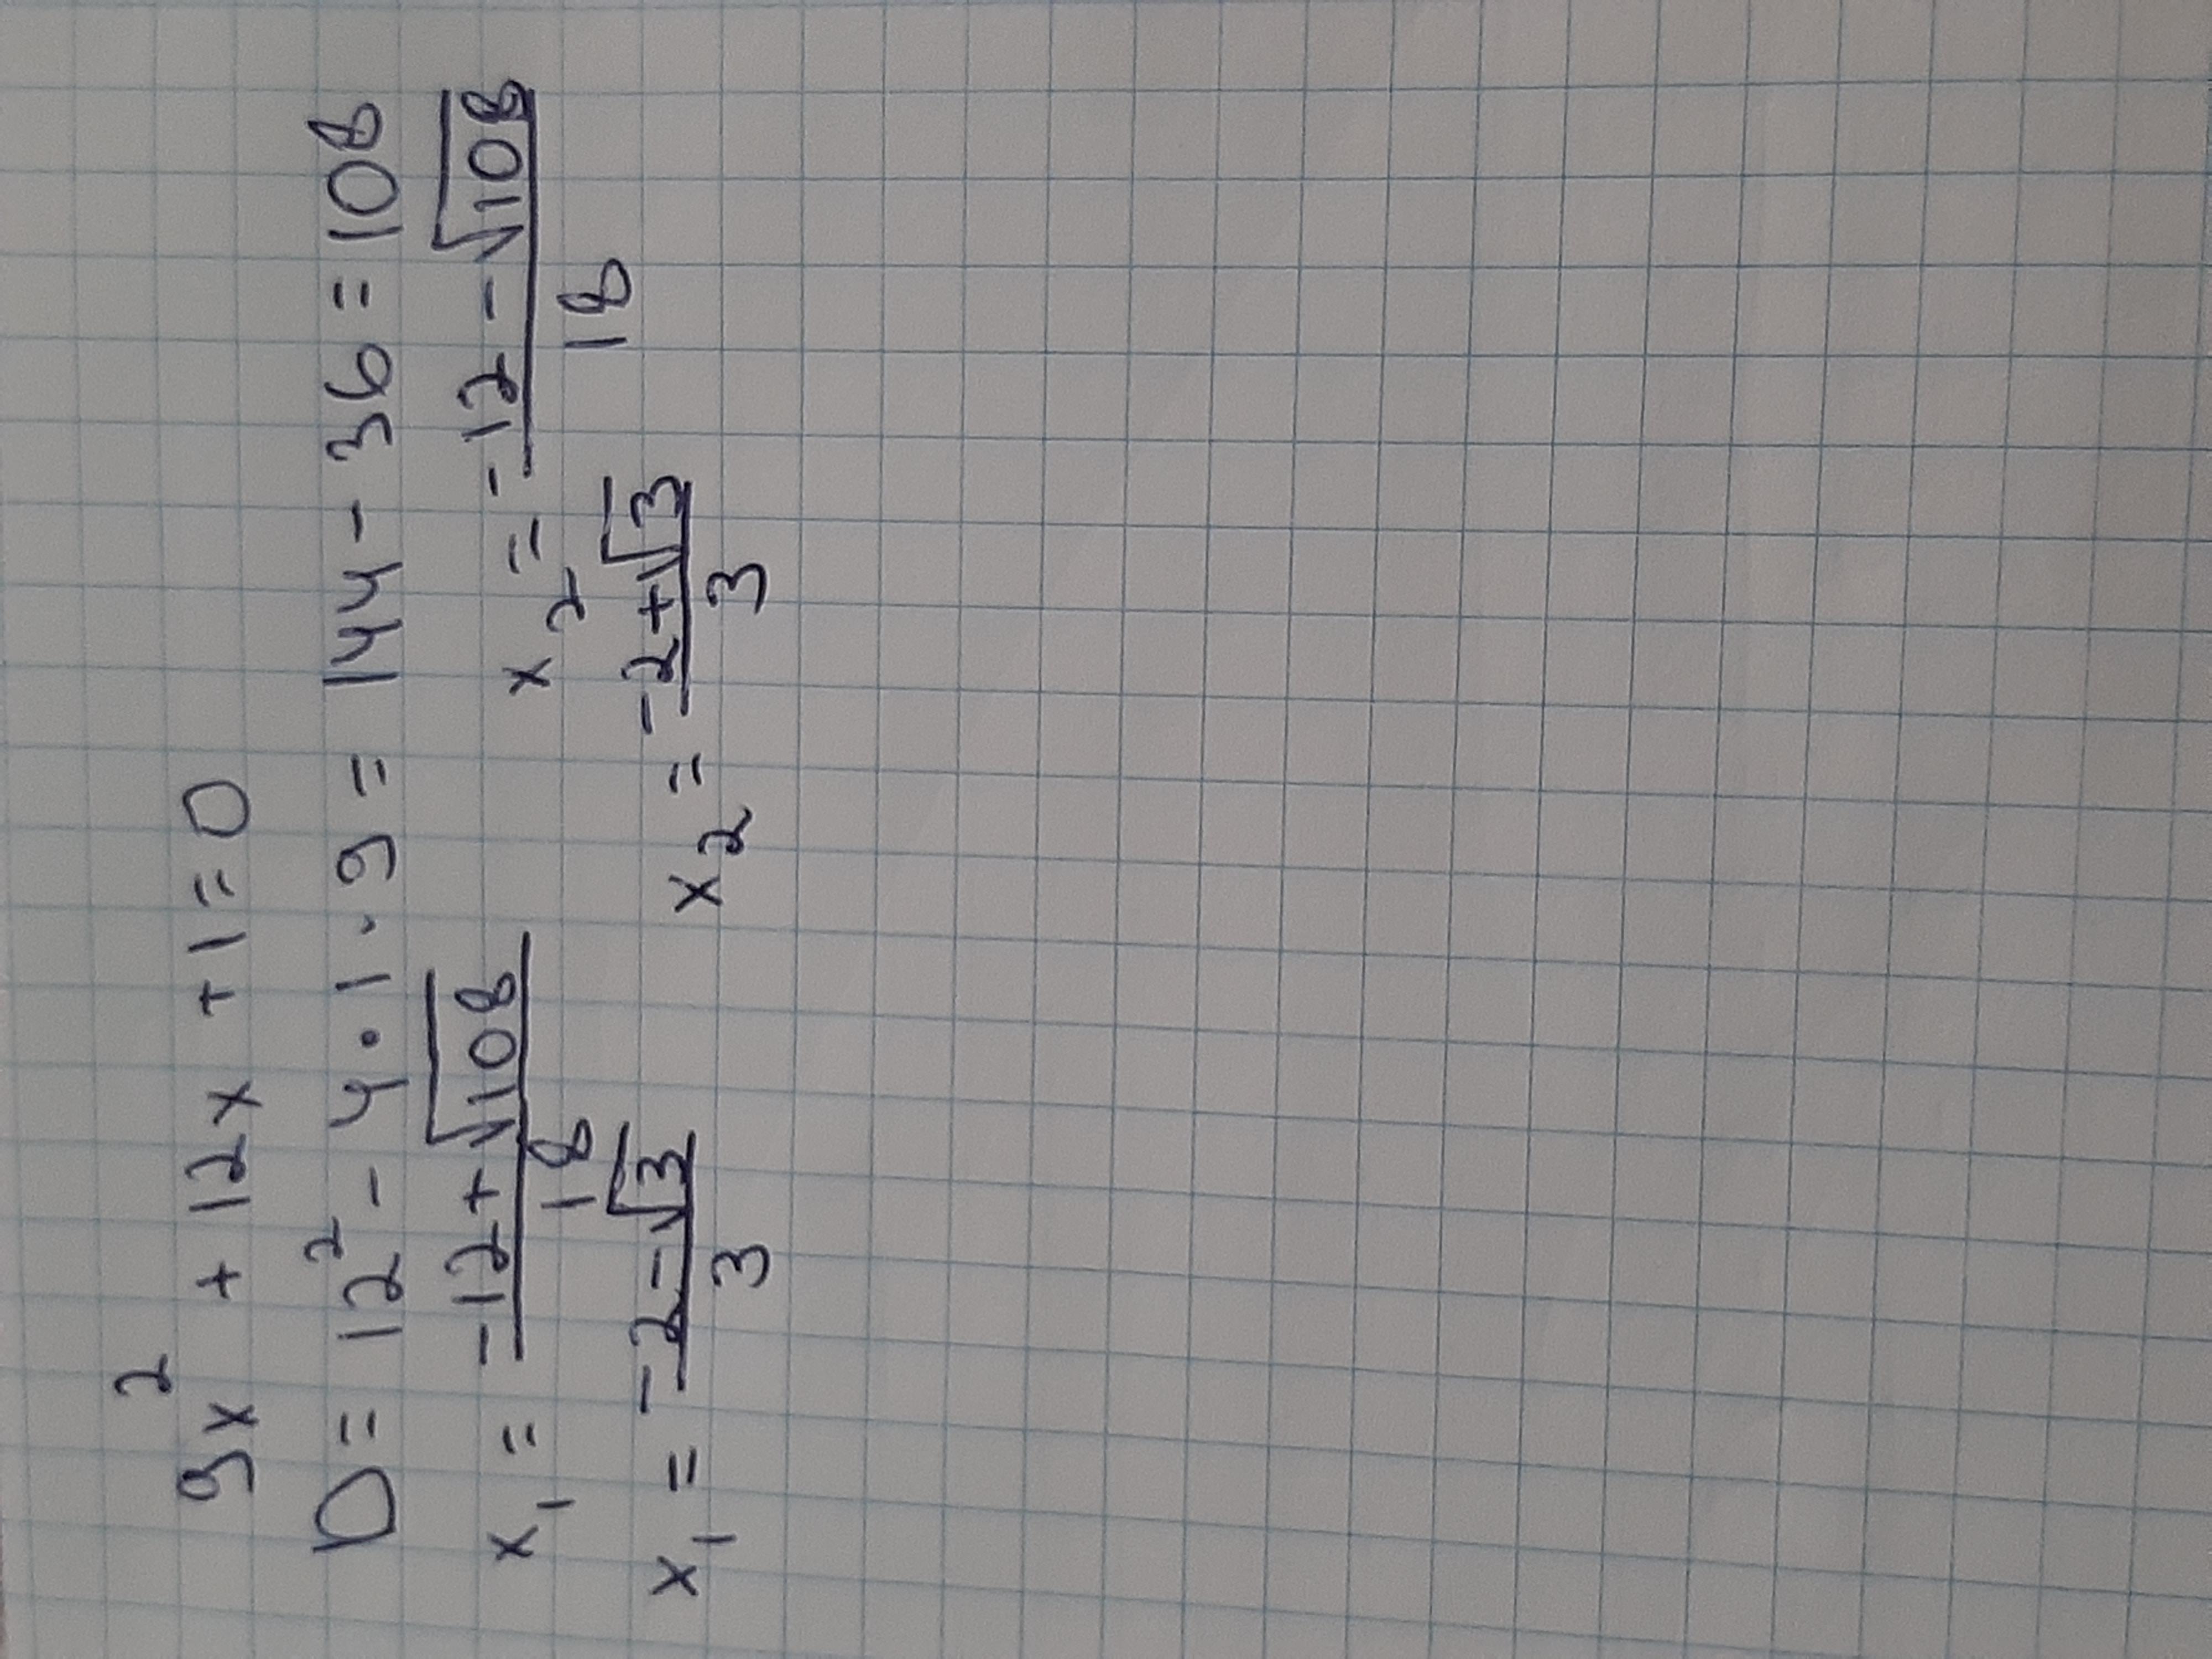 9x² + 12x + 1 = 0
D = 12² - 4 · 1 · 9 = 144 - 36 = 108
x₁ = (-12 + √108)/18 x₂ = (-12 - √108)/18
x₁ = (-2 - √3)/3 x₂ = (-2 + √3)/3